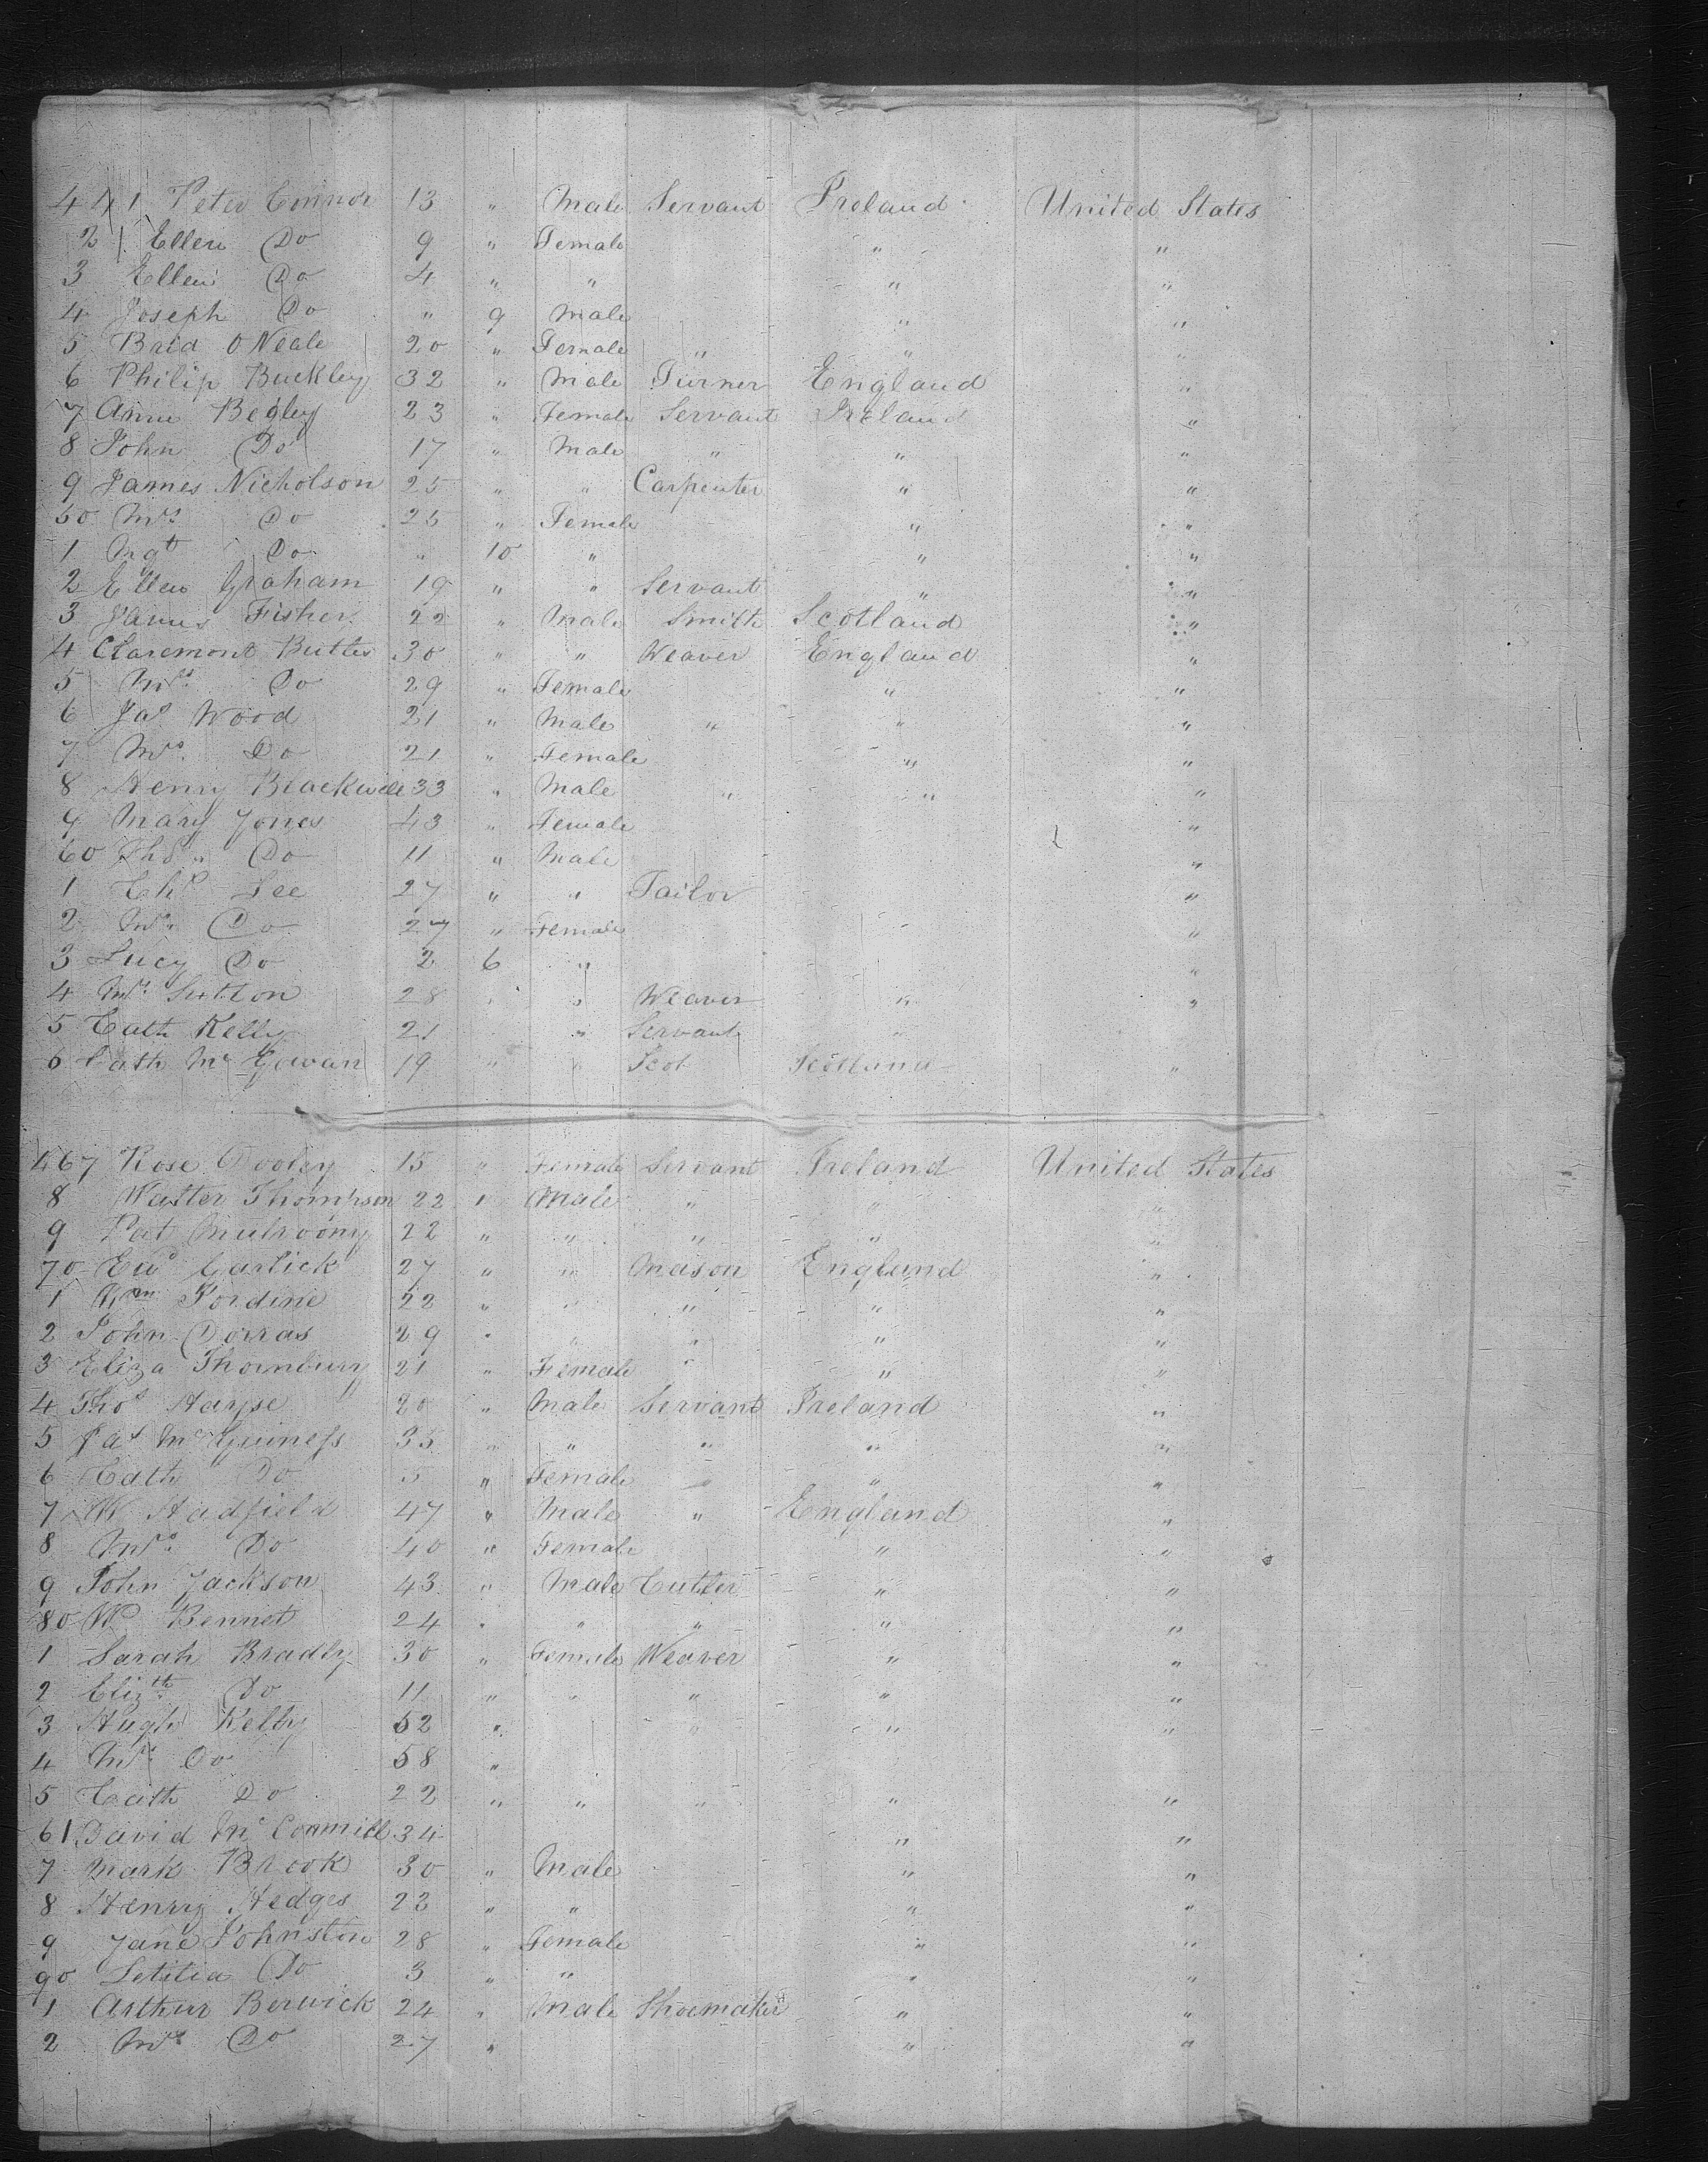 441 Peter Connor 13 " Male Servant Ireland United States
2 Ellen Do 9 " Female " "
3 Ellen Do 4 " " " "
4 Joseph Do " 9 Male " "
5 Brid O Neale 20 " Female " " "
6 Philip Buckley 32 " Male Turner England "
7 Anne Begley 23 " Female Servant Ireland "
8 John Do 17 " Male " " "
9 James Nicholson 25 " " Carpenter " "
50 Mrs Do 25 " Female " "
1 Mgt Do " 10 " " "
2 Ellen Graham 19 " " Servant " "
3 James Fisher 22 " Male Smith Scotland "
4 Claremont Butler 30 " " Weaver England "
5 Mrs Do 29 " Female " "
6 Jas Wood 21 " Male " " "
7 Mrs Do 21 " Female " "
8 Henry Blackwell 33 " Male " " "
9 Mary Jones 43 " Female "
60 Thos " Do 11 " Male "
1 Chs Lee 27 " " Tailor "
2 Mrs Do 27 " Female "
3 Lucy Do 2 6 " "
4 Mrs Sutton 28 " " Weaver " "
5 Cath Kelly 21 " Servant "
6 Cath Mc Gowan 19 " " Scot Scotland "
467 Rose Dooley 15 " Female Servant Ireland United States
8 Walter Thompson 22 " Male " " "
9 Pat Mulroony 22 " " " " "
70 Ed Carlick 27 " " Mason England "
1 Wm Pordine 22 " " " " "
2 John Dorras 29 " " " " "
3 Eliza Thornbury 21 " Female " " "
4 Thos Harpe 20 " Male Servant Ireland "
5 Jas Mc Guiness 35 " " " " "
6 Cath Do 5 " Female " " "
7 W Hadfield 47 " Male " England "
8 Mrs Do 40 " Female " "
9 John Jackson 43 " Male Cutler " "
80 Wm Bennet 24 " " " " "
1 Sarah Bradly 30 " Female Weaver " "
2 Elizth Do 11 " " " " "
3 Hugh Kelly 52 " " " "
4 Mrs Do 58 "
5 Cath Do 22 " " " " "
6 David Mc Conmill 34 " "
7 Mark Brook 30 " Male " "
8 Henry Hedges 22 " " " "
9 Jane Johnston 28 " Female " "
90 Letitia Do 3 " " " "
1 Arthur Berwick 24 " Male Shoemaker " "
2 Mrs Do 27 " " "